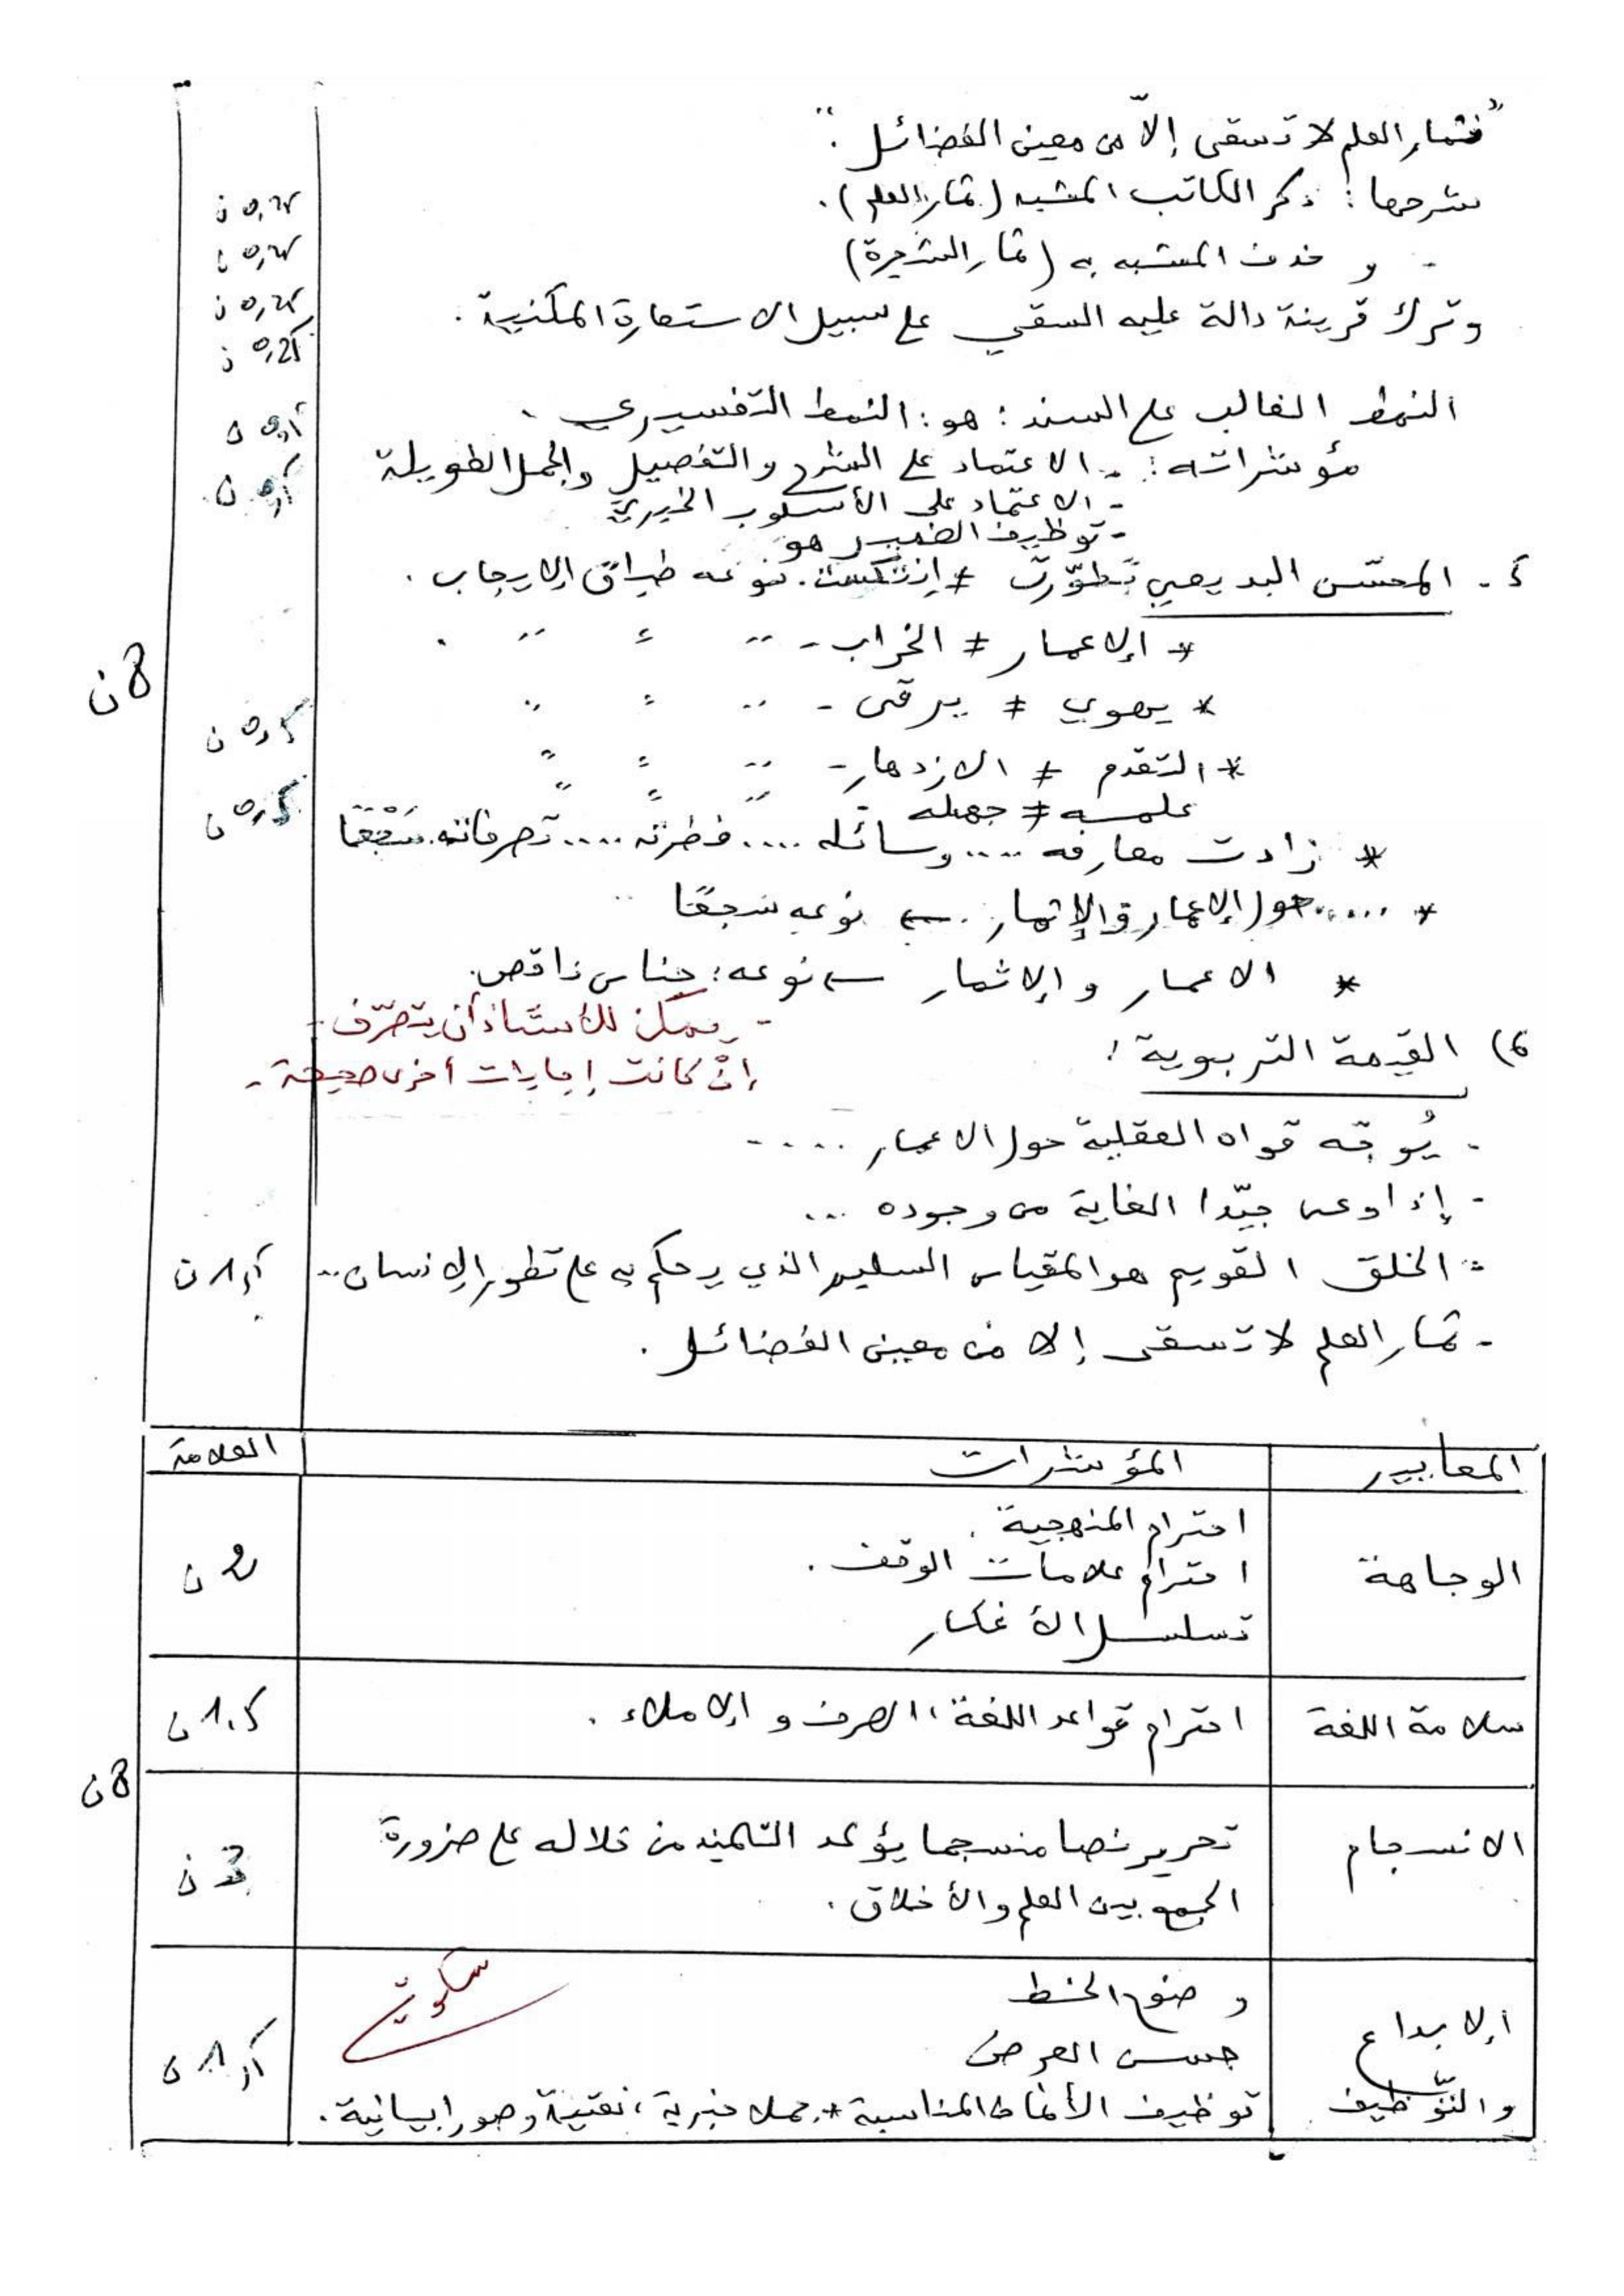 "فثمار العلم لا تسقى إلاّ من معين الفضائل".
شرحها: ذكر الكاتب المشبه (ثمار العلم). 0,25 ن
- و حذف المشبه به (ثمار الشجرة) 0,25 ن
وترك قرينة دالة عليه السقي على سبيل الاستعارة المكنية. 0,25 ن
0,25 ن
النمط الغالب على السند: هو: النمط التفسيري. 0,5 ن
مؤشراته: - الاعتماد على الشرح والتفصيل والجمل الطويلة 0,5 ن
- الاعتماد على الأسلوب الخبري
- توظيف الضمير هو
5 - المحسّن البديعي تطوّرت ≠ انتكست. نوعه طباق الإيجاب.
* الإعمار ≠ الخراب - " " " " .
8ن
* يهوي ≠ يرقى - " " "
0,5 ن
* التقدم ≠ الازدهار - " " "
علمه ≠ جهله " " "
0,5 ن
* زادت معارفه .... وسائله .... فطرته .... تصرفاته. سَجْعًا
* ..... حول الإعمار والإثمار. ← نوعه سجعًا
* الاعمار و الإثمار ← نوعه: جناس ناقص.
- يمكن للأستاذ أن يتصرّف -
إنْ كانت إجابات أخرى صحيحة -
6) القيمة التربوية:
- يُوجّه قواه العقلية حول الاعمار ....-
- إذا وعى جيّدا الغاية من وجوده ...
- الخلق القويم هو المقياس السليم الذي يحكم به على تطور الإنسان.. 1,5 ن
- ثمار العلم لا تسقى إلا من معين الفضائل.
المعايير المؤشرات العلامة
احترام المنهجية.
الوجاهة احترام علامات الوقف. 2 ن
تسلسل الأفكار
سلامة اللغة احترام قواعد اللغة، الصرف و الإملاء. 1,5 ن
8ن
الانسجام تحرير نصا منسجما يؤكد التلميذ من خلاله على ضرورة 3 ن
الجمع بين العلم والأخلاق.
وضوح الخط
الإبداع حسن العرض 1,5 ن
والتّوظيف توظيف الأنماط المناسبة * جملا خبرية، وصورا بيانية.